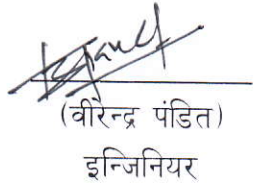 (वीरेन्द्र पंडित)
इन्जिनियर